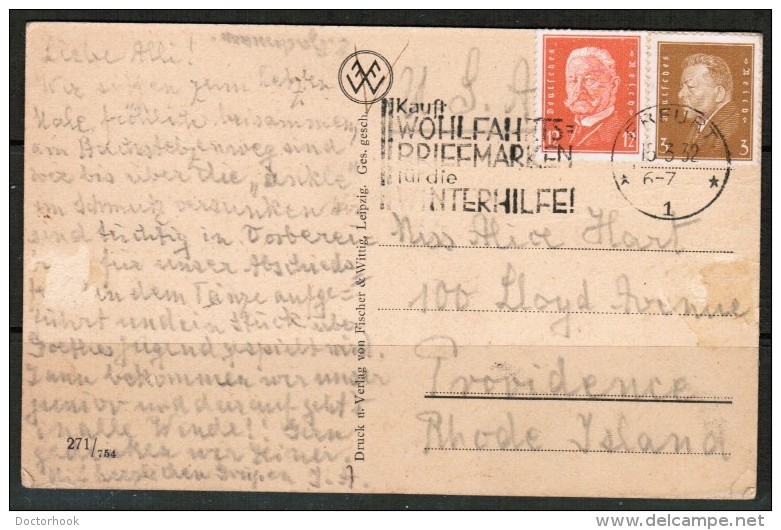 Liebe Alli!
Wir sitzen zum letzten
Male fröhlich beisammen
am sind
wir bis über die
im Schmutz versunken. Sie
sind tüchtig in Vorberei-
für unser Abschieds
in dem Tänze aufge-
führt und ein Stück über
Goethes Jugend gespielt wird.
Dann bekommen wir unser
und darauf geht
alle Winde!
wir Deiner.
Mit herzlichen Grüßen J. A.
271/754
Druck u. Verlag von Fischer & Wittig, Leipzig. Ges. gesch.
U. S. A.
Kauft
WOHLFAHRTS=
BRIEFMARKEN
für die
WINTERHILFE!
Deutsches Reich
12 12
Deutsches Reich
3 3
ERFURT
15.3.32
6-7
* *
1
Miss Alice Hart
100 Lloyd Avenue
Providence
Rhode Island
Doctorhook
delcampe.net